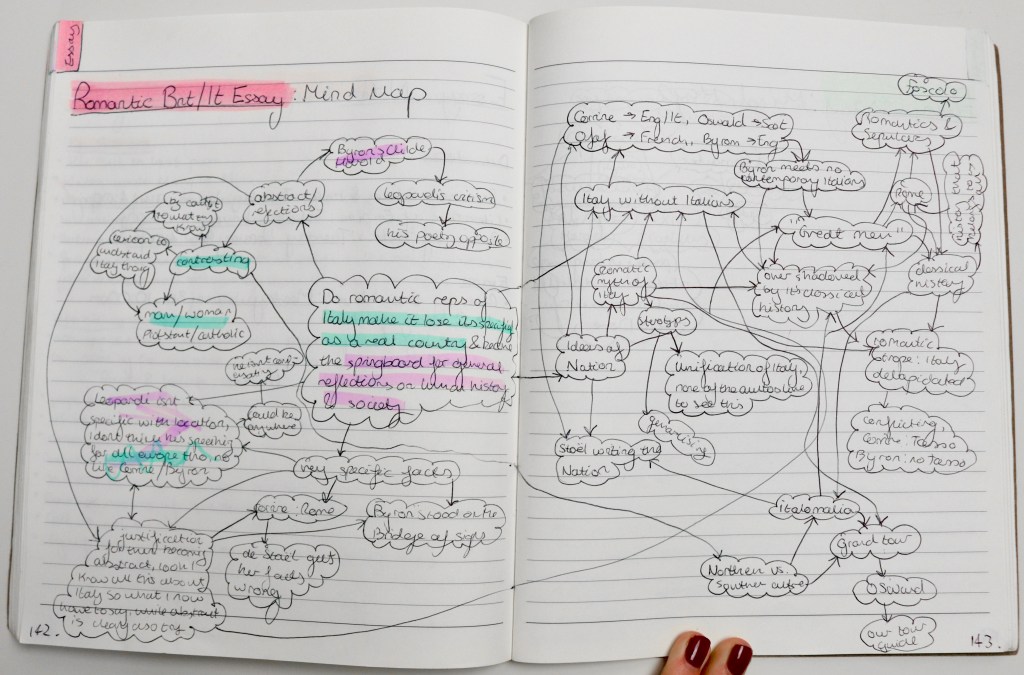 Essay
Romantic Brit/It Essay: Mind Map
Byron's Childe
Harold
abstract/
reflections
leopardi's criticism
his poetry opposite
understand
Italy thorg
contrasting
man/woman
Protestant/catholic
Do romantic reps of
Italy make it lose its specificity
as a real country & become
the springboard for general
reflections on what history
& society
Leopardi isn't
specific with location,
I don't think he's speaking
for all europe tho, not
like Corinne/Byron
could be
anywhere
very specific facts
corinne: Rome
Byron stood on the
Bridge of sighs
de Stael gets
her facts
wrong
justification
for them becoming
abstract, look I
know all this about
Italy so what I now
have to say while abstract
is clearly also try
142.
Foscolo
Corinne → Eng/It, Oswald → Scot
French, Byron → Eng
Romantics &
Sepulchres
Byron meets no
contemporary Italians
Rome
Italy without Italians
"Great men"
romantic
myth of
Italy
overshadowed
by its classical
history
classical
history
Ideas of
Nation
unification of Italy,
none of the authors live
to see this
romantic
trope: Italy
delapidated
conflicting,
Corinne: Tasso
Byron: no tasso
Stael writing the
Nation
Italomania
Grand tour
Northern vs.
southern
Oswald
our tour
guide
143.